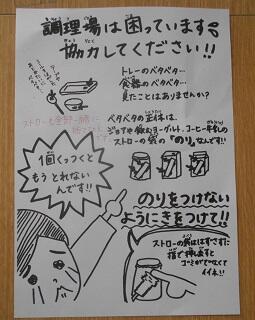 調理場は困っています
協力してください!!
トレーのベタベタ…
食器のベタベタ…
見たことはありませんか?
ベタベタの正体は、
ジョアや飲むヨーグルト、コーヒー牛乳の
ストローの袋の「のり」なんです!!
1個くっつくと
もうとれない
んです!!
のりをつけない
ようにきをつけて!!
ストローの袋ははずさずに
指で押しますと
ゴミがでなくて
イイネ!!